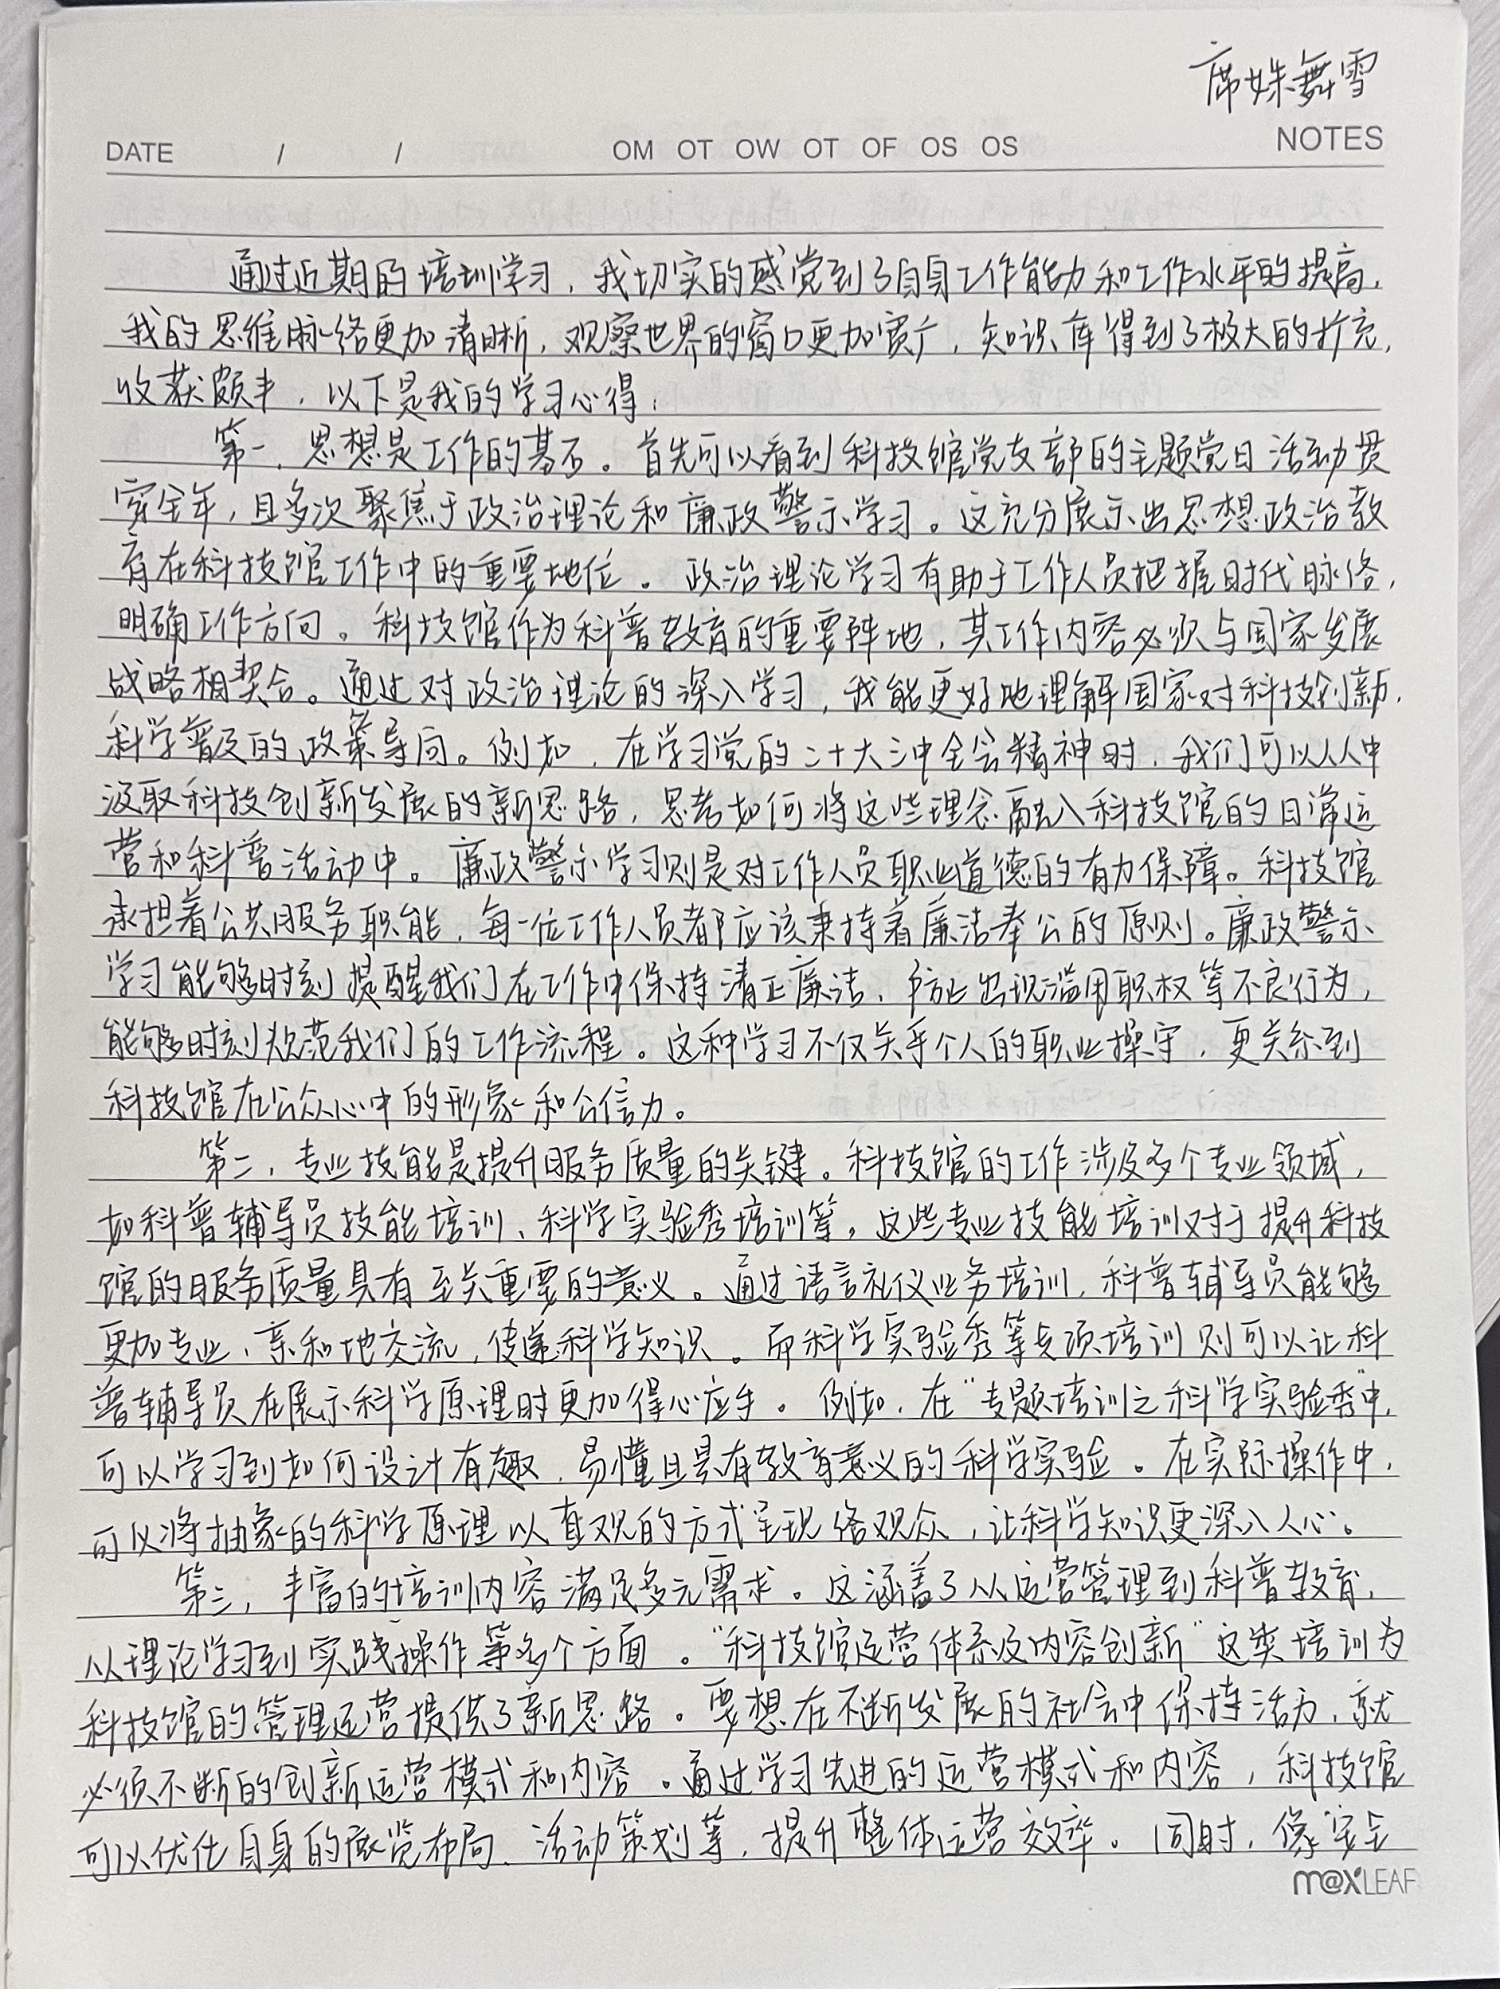 席姝舞雪
DATE / / OM OT OW OT OF OS OS NOTES
通过近期的培训学习，我切实的感觉到了自身工作能力和工作水平的提高，
我的思维脉络更加清晰，观察世界的窗口更加宽广，知识库得到了极大的扩充，
收获颇丰，以下是我的学习心得：
第一，思想是工作的基石。首先可以看到科技馆党支部的主题党日活动贯
穿全年，且多次聚焦于政治理论和廉政警示学习。这充分展示出思想政治教
育在科技馆工作中的重要地位。政治理论学习有助于工作人员把握时代脉络，
明确工作方向。科技馆作为科普教育的重要阵地，其工作内容必须与国家发展
战略相契合。通过对政治理论的深入学习，我能更好地理解国家对科技创新、
科学普及的政策导向。例如，在学习党的二十大三中全会精神时，我们可以从中
汲取科技创新发展的新思路，思考如何将这些理念融入科技馆的日常运
营和科普活动中。廉政警示学习则是对工作人员职业道德的有力保障。科技馆
承担着公共服务职能，每一位工作人员都应该秉持着廉洁奉公的原则。廉政警示
学习能够时刻提醒我们在工作中保持清正廉洁、防止出现滥用职权等不良行为，
能够时刻规范我们的工作流程。这种学习不仅关乎个人的职业操守，更关系到
科技馆在公众心中的形象和公信力。
第二，专业技能是提升服务质量的关键。科技馆的工作涉及多个专业领域，
如科普辅导员技能培训、科学实验秀培训等。这些专业技能培训对于提升科技
馆的服务质量具有至关重要的意义。通过语言礼仪业务培训，科普辅导员能够
更加专业、亲和地交流，传递科学知识。而科学实验秀等专项培训则可以让科
普辅导员在展示科学原理时更加得心应手。例如，在“专题培训之科学实验秀”中，
可以学习到如何设计有趣、易懂且具有教育意义的科学实验。在实际操作中，
可以将抽象的科学原理以直观的方式呈现给观众，让科学知识更深入人心。
第三，丰富的培训内容满足多元需求。这涵盖了从运营管理到科普教育，
从理论学习到实践操作等多个方面。“科技馆运营体系及内容创新”这类培训为
科技馆的管理运营提供了新思路。要想在不断发展的社会中保持活力，就
必须不断的创新运营模式和内容。通过学习先进的运营模式和内容，科技馆
可以优化自身的展览布局、活动策划等，提升整体运营效率。同时，像“安全
m@xLEAF